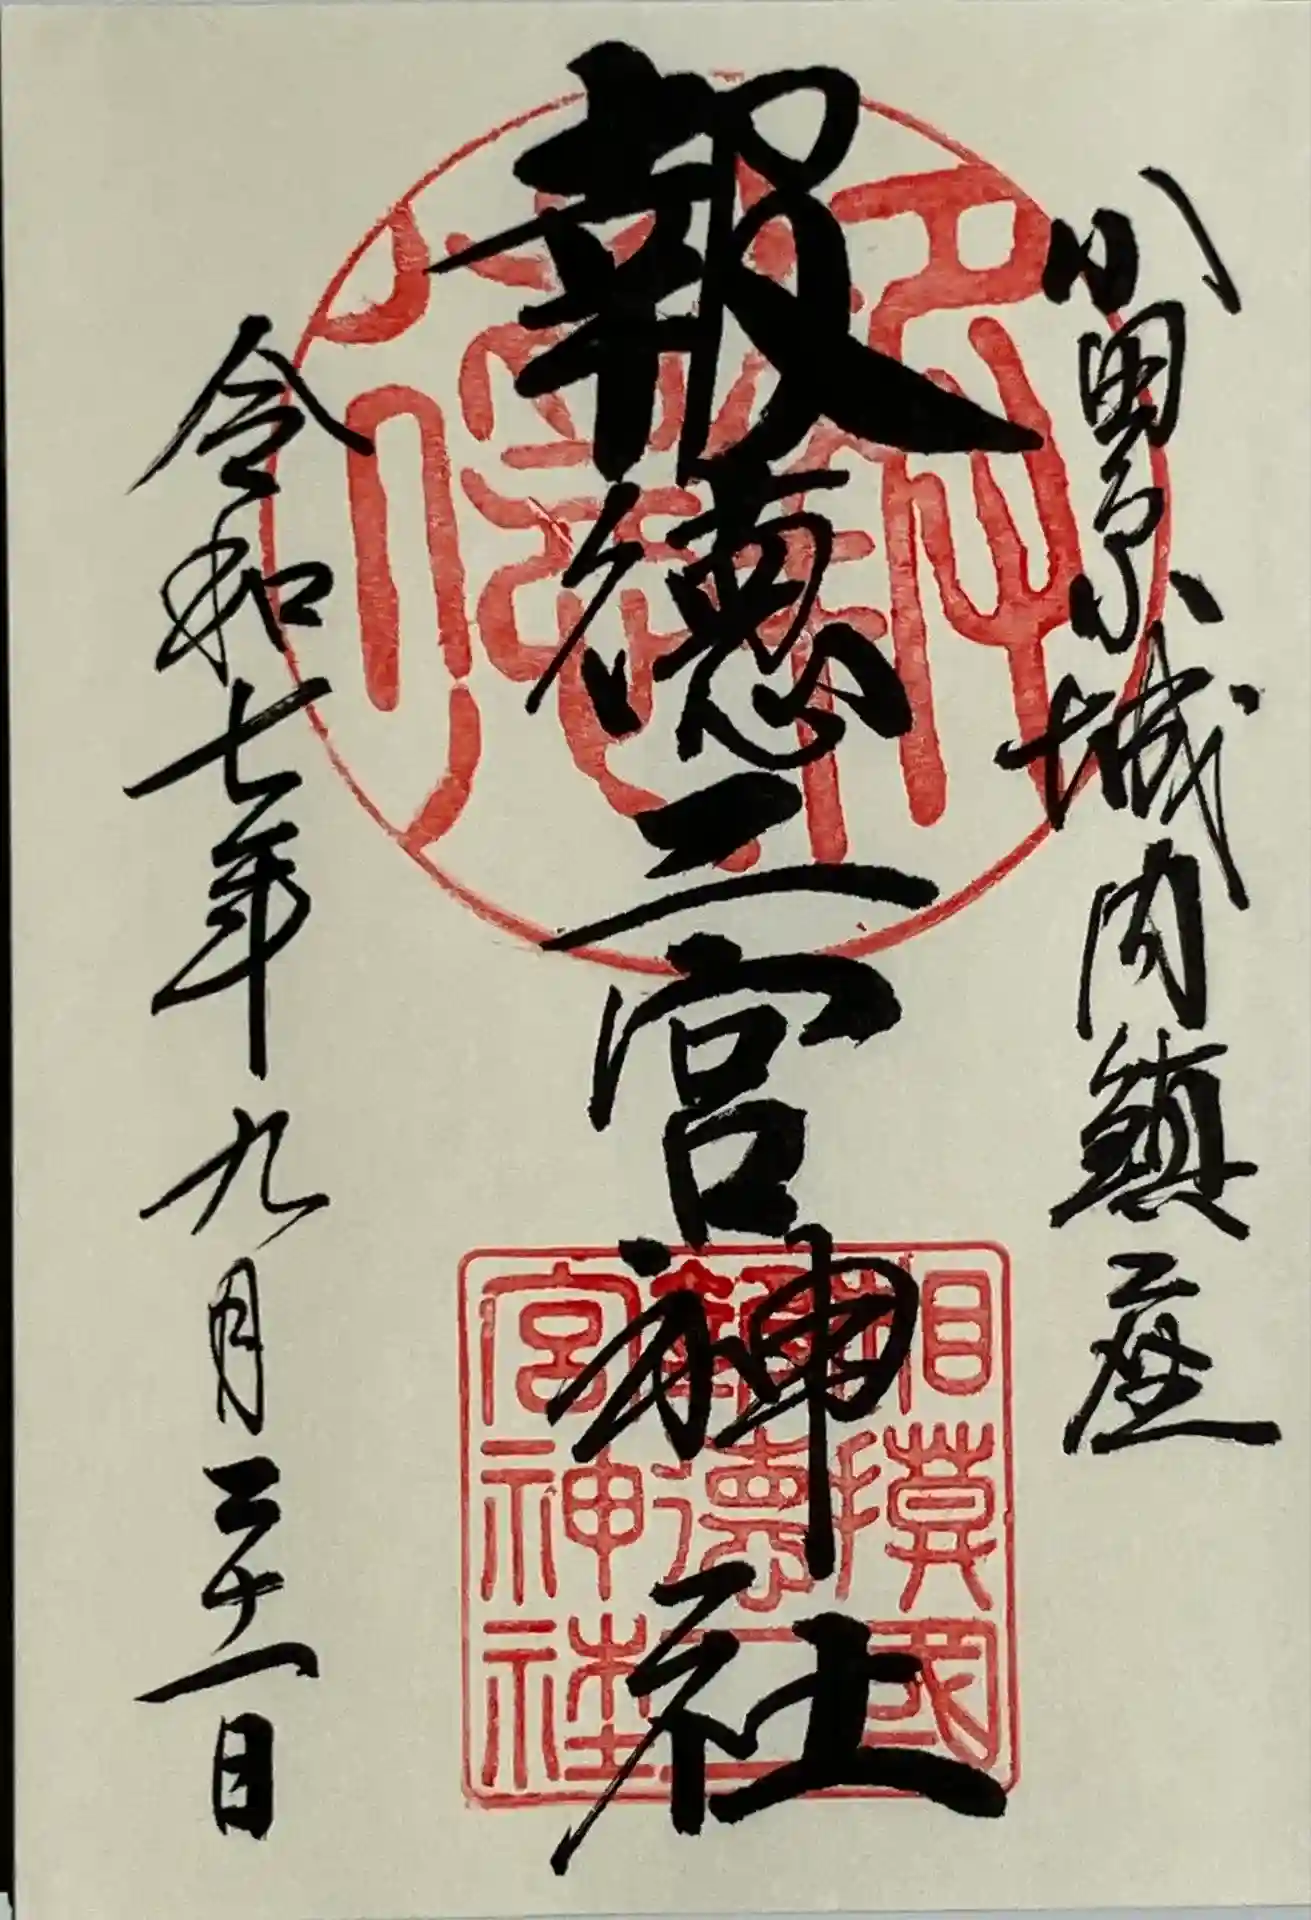 小田原城内鎮座
報徳二宮神社
令和七年九月二十一日
相模國
報徳二
宮神社